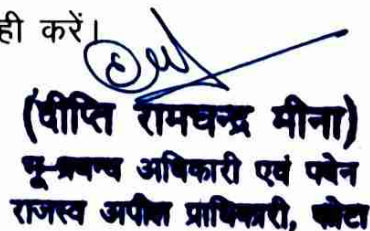 ही करें।
(दीप्ति रामचन्द्र मीना)
भू-प्रबन्ध अधिकारी एवं पदेन
राजस्व अपील प्राधिकारी, कोटा